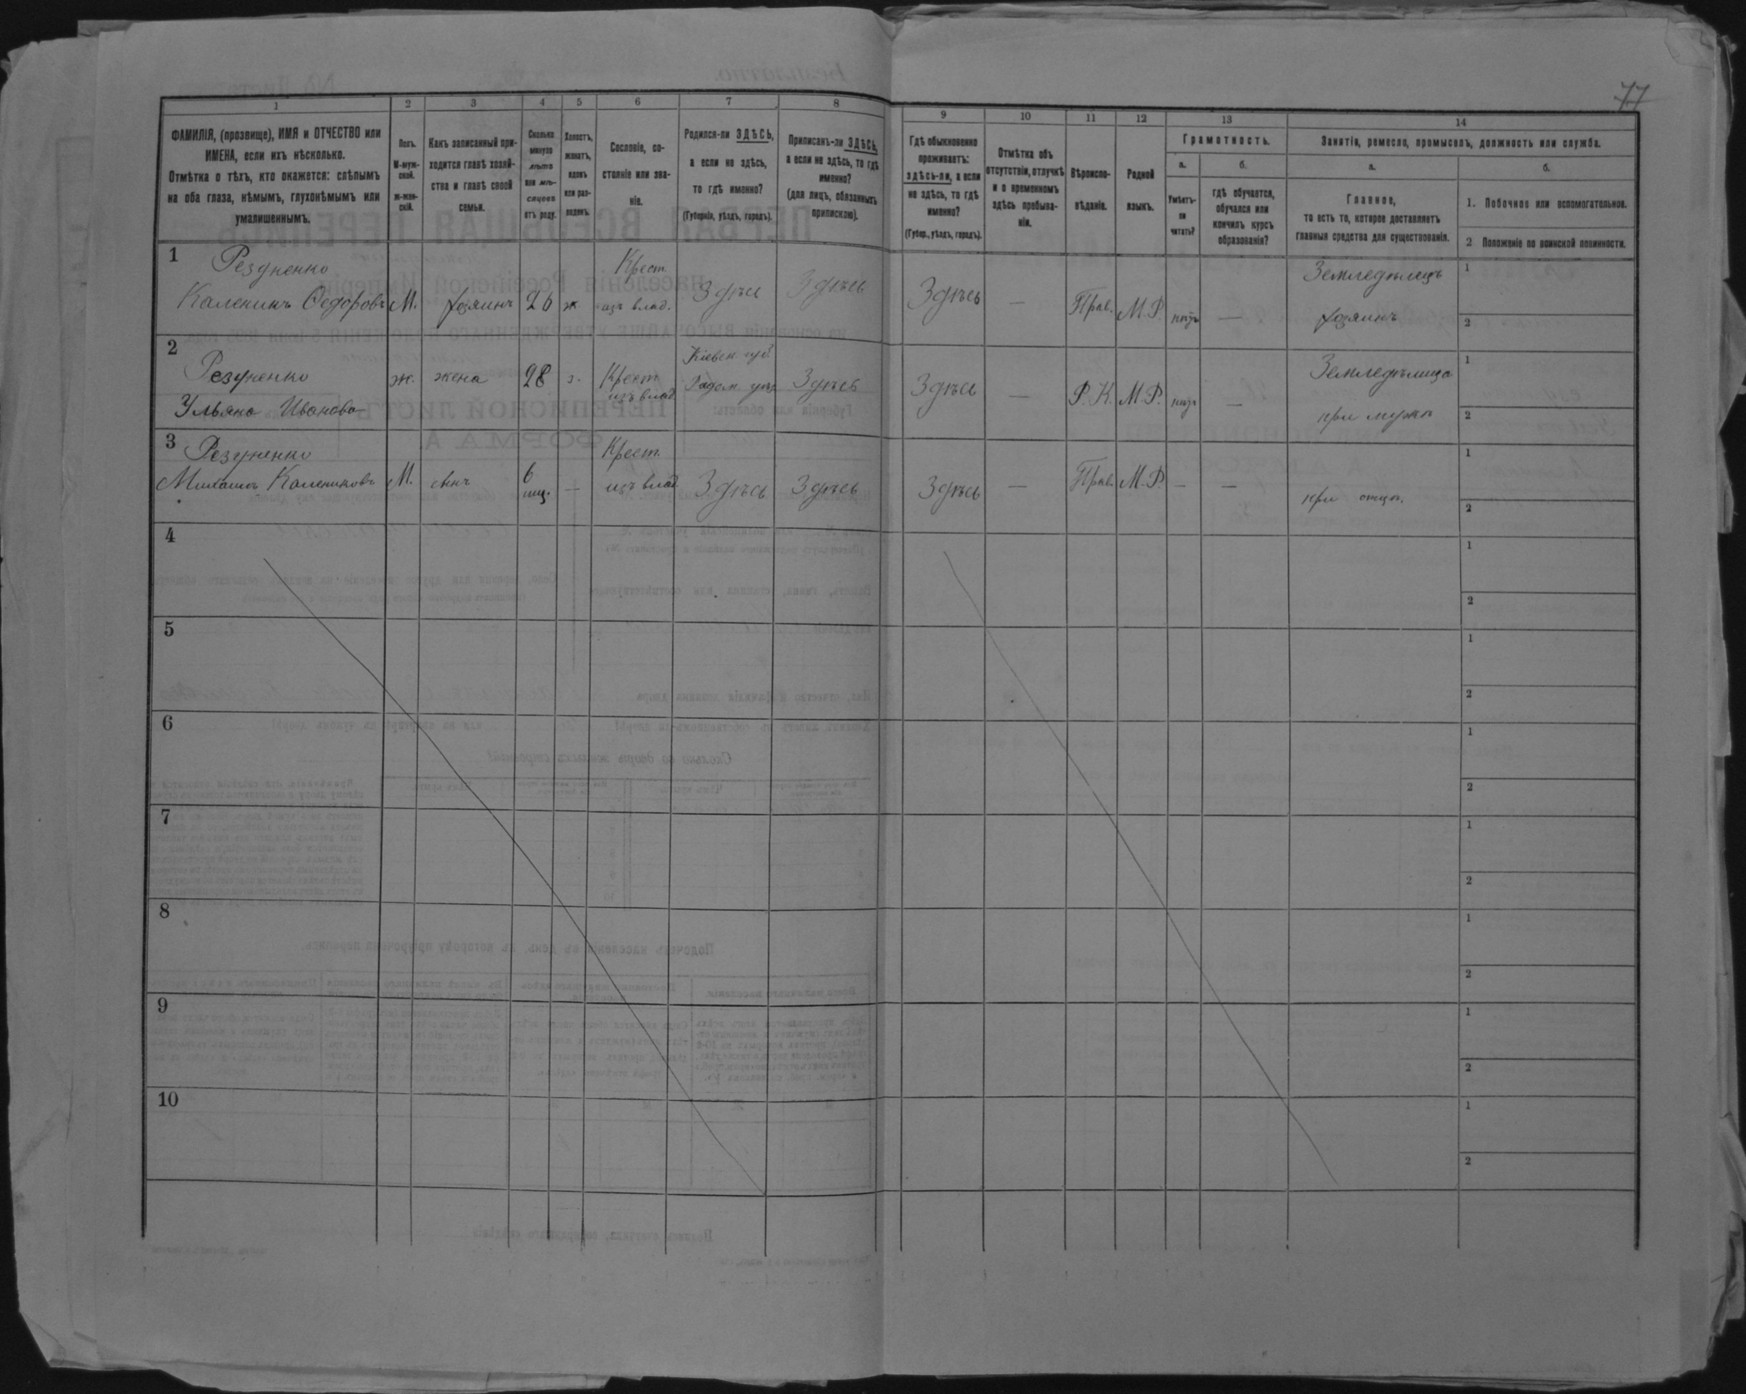 77
1 2 3 4 5 6 7 8 9 10 11 12 13 14
ФАМИЛІЯ, (прозвище), ИМЯ и ОТЧЕСТВО или
ИМЕНА, если ихъ нѣсколько.
Отмѣтка о тѣхъ, кто окажется: слѣпымъ
на оба глаза, нѣмымъ, глухонѣмымъ или
умалишеннымъ.
Полъ.
М-муж-
ской.
Ж-жен-
скій.
Какъ записанный при-
ходится главѣ хозяй-
ства и главѣ своей
семьи.
Сколько
минуло
лѣтъ
или мѣ-
сяцевъ
отъ роду.
Холостъ,
женатъ,
вдовъ
или раз-
веденъ.
Сословіе, со-
стояніе или зва-
ніе.
Родился-ли ЗДѢСЬ,
а если не здѣсь,
то гдѣ именно?
(Губернія, уѣздъ, городъ).
Приписанъ-ли ЗДѢСЬ,
а если не здѣсь, то гдѣ
именно?
(для лицъ, обязанныхъ
припискою).
Гдѣ обыкновенно
проживаетъ:
здѣсь-ли, а если
не здѣсь, то гдѣ
именно?
(Губер., уѣздъ, городъ).
Отмѣтка объ
отсутствіи, отлучкѣ
и о временномъ
здѣсь пребыва-
ніи.
Вѣроиспо-
вѣданіе.
Родной
языкъ.
Грамотность.
а.
Умѣетъ-
ли
читать?
б.
гдѣ обучается,
обучался или
кончилъ курсъ
образованія?
Занятіе, ремесло, промыселъ, должность или служба.
а.
Главное,
то есть то, которое доставляетъ
главныя средства для существованія.
б.
1. Побочное или вспомогательное.
2 Положеніе по воинской повинности.
1
Резуненко
Каленикъ Ѳедоровъ М. хозяинъ 26 ж Крест. изъ влад. Здѣсь Здѣсь Здѣсь — Прав. М.Р. нѣтъ — Земледѣлецъ
хозяинъ
1
2
2
Резуненко
Ульяна Иванова ж. жена 28 з. Крест. изъ влад. Кіевск губ. Радом уѣзд Здѣсь Здѣсь — Р.К. М.Р. нѣтъ — Земледѣлица
при мужѣ
1
2
3
Резуненко
Михаилъ Калениковъ М. сынъ 6 мѣс. — Крест. изъ влад. Здѣсь Здѣсь Здѣсь — Прав. М.Р. — — при отцѣ.
1
2
4
1
2
5
1
2
6
1
2
7
1
2
8
1
2
9
1
2
10
1
2